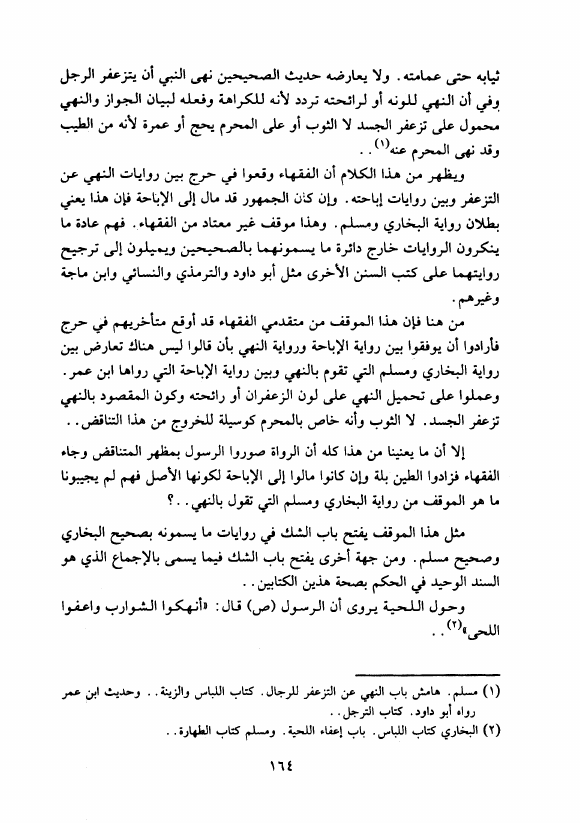 ثيابه حتى عمامته. ولا يعارضه حديث الصحيحين نهى النبي أن يتزعفر الرجل
وفي أن النهي للونه أو لرائحته تردد لأنه للكراهة وفعله لبيان الجواز والنهي
محمول على تزعفر الجسد لا الثوب أو على المحرم يحج أو عمرة لأنه من الطيب
وقد نهى المحرم عنه(١)..
ويظهر من هذا الكلام أن الفقهاء وقعوا في حرج بين روايات النهي عن
التزعفر وبين روايات إباحته. وإن كان الجمهور قد مال إلى الإباحة فإن هذا يعني
بطلان رواية البخاري ومسلم. وهذا موقف غير معتاد من الفقهاء. فهم عادة ما
ينكرون الروايات خارج دائرة ما يسمونهما بالصحيحين ويميلون إلى ترجيح
روايتهما على كتب السنن الأخرى مثل أبو داود والترمذي والنسائي وابن ماجة
وغيرهم.
من هنا فإن هذا الموقف من متقدمي الفقهاء قد أوقع متأخريهم في حرج
فأرادوا أن يوفقوا بين رواية الإباحة ورواية النهي بأن قالوا ليس هناك تعارض بين
رواية البخاري ومسلم التي تقوم بالنهي وبين رواية الإباحة التي رواها ابن عمر.
وعملوا على تحميل النهي على لون الزعفران أو رائحته وكون المقصود بالنهي
تزعفر الجسد. لا الثوب وأنه خاص بالمحرم كوسيلة للخروج من هذا التناقض..
إلا أن ما يعنينا من هذا كله أن الرواة صوروا الرسول بمظهر المتناقض وجاء
الفقهاء فزادوا الطين بلة وإن كانوا مالوا إلى الإباحة لكونها الأصل فهم لم يجيبونا
ما هو الموقف من رواية البخاري ومسلم التي تقول بالنهي..؟
مثل هذا الموقف يفتح باب الشك في روايات ما يسمونه بصحيح البخاري
وصحيح مسلم. ومن جهة أخرى يفتح باب الشك فيما يسمى بالإجماع الذي هو
السند الوحيد في الحكم بصحة هذين الكتابين..
وحول اللحية يروى أن الرسول (ص) قال: «أنهكوا الشوارب واعفوا
اللحى»(٢)..
(١) مسلم. هامش باب النهي عن التزعفر للرجال. كتاب اللباس والزينة.. وحديث ابن عمر
رواه أبو داود. كتاب الترجل..
(٢) البخاري كتاب اللباس. باب إعفاء اللحية. ومسلم كتاب الطهارة..
١٦٤